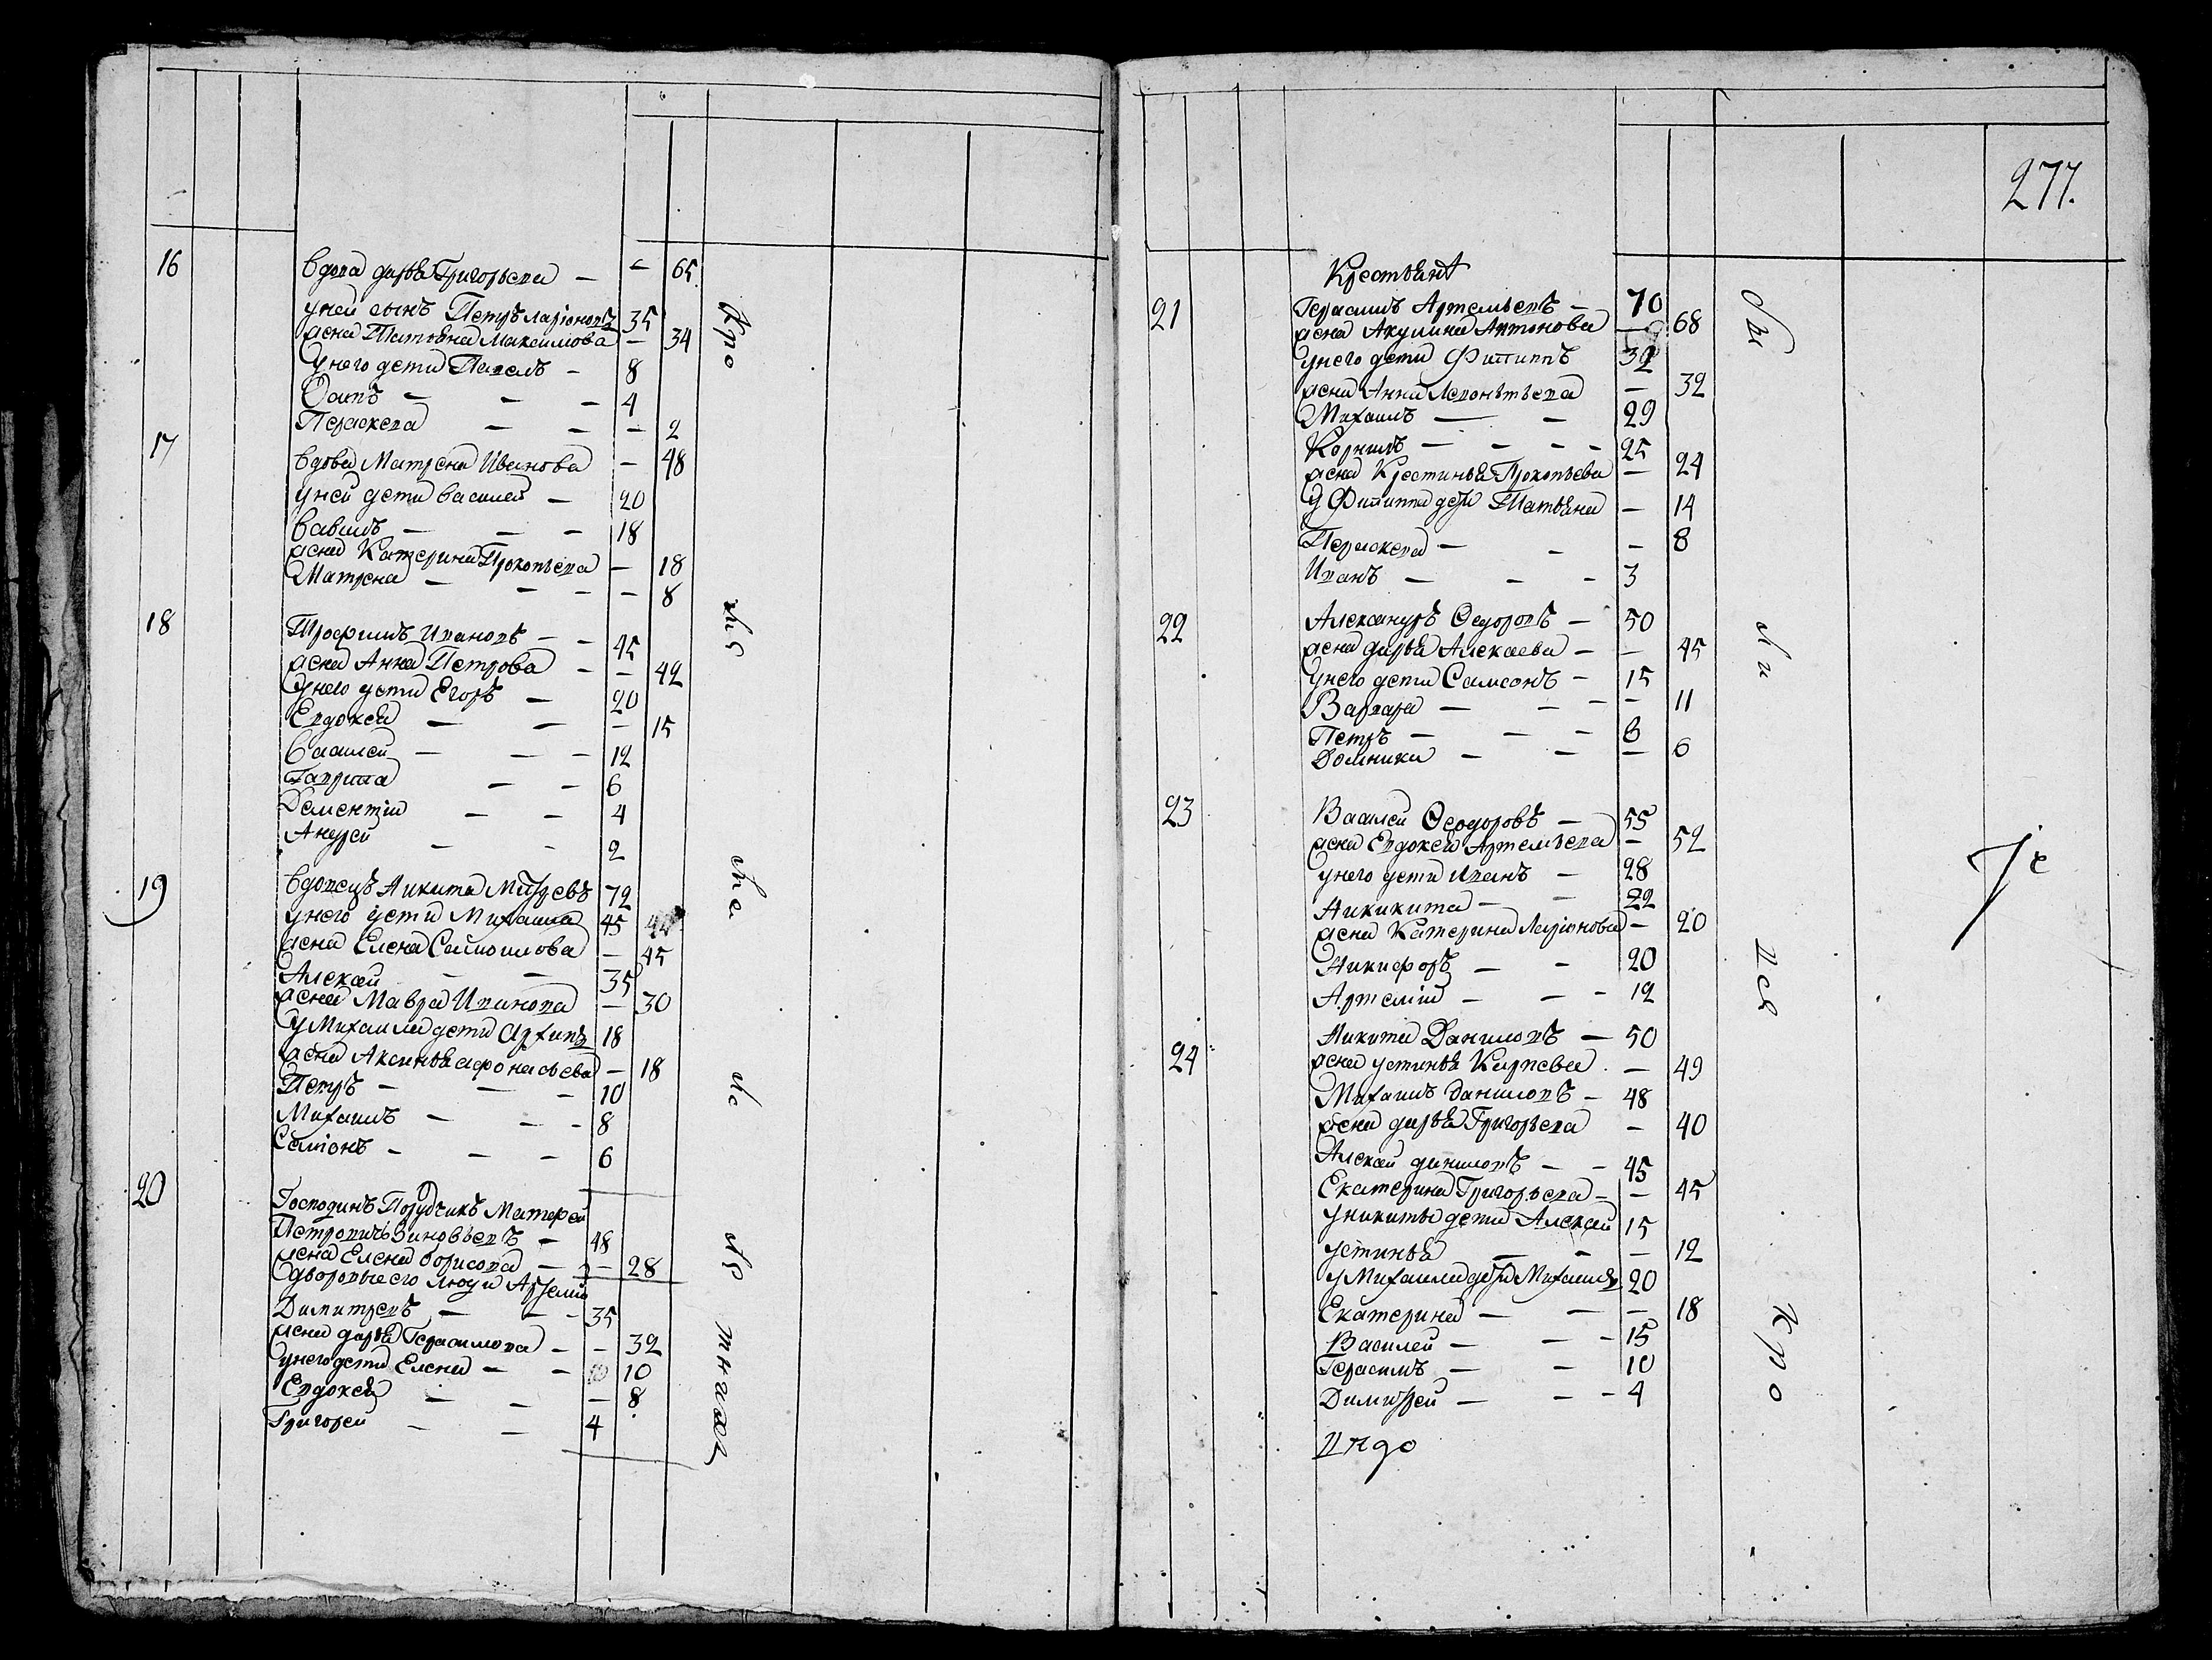 16 вдова дарья Григорьева — — 65
у ней сынъ Петръ ларионовъ 35
жена Татьяна Максимова — 34
У него дети Павелъ — 8
Осипъ — — — 4
Параскева — — — 2
17 вдова Матрена Иванова — 48
у ней дети василей — 20
вавилъ — — — 18
жена Катерина Прокопьева — 18
Матрена — — — — 8
18 Трофимъ Ивановъ — — 45
жена Анна Петрова — — 42
У него дети Егоръ — 20
Евдокея — — — 15
василей — — — 12
Гаврила — — 6
Дементiй — — 4
Андрей — — 2
19 вдовецъ Никита 72
у него дети Михаила 45
жена Елена Самоилова — 45
Алексей — — 35
жена Мавра Иванова — 30
У Михаила дети Архипъ 18
жена Аксинья афонасьева — 18
Петръ — — — 10
Михаилъ — — — 8
Семiонъ — — — 6
20 Господинъ Порутчикъ Матфей
Петровичь Зиновьевъ — 48
жена Елена борисова — — 28
дворовые его люди Артемiй
Димитревъ — — — 35
жена дарья Герасимова — — 32
у него дети Елена — — 10
Евдокея — — — 8
Григорей — — 4
277.
Крестьянѣ
21 Герасимъ Артемьевъ — 70
жена Акулина Антонова — 68
У него дети Филиппъ 32
жена Анна Леонтьева — 32
Михаилъ — — 29
Корнилъ — — — — 25
жена Крестинья Прокопьева — 24
У Филиппа дети Татьяна — 14
Параскева — — — 8
Иванъ — — — 3
22 Александръ Ѳедоровъ — 50
жена дарья Алексеева — — 45
У него дети Самсонъ — 15
Варвара — — — — 11
Петръ — — — 8
Домника — — — 6
23 Василей Ѳеодоровъ — 55
жена Евдокея Артемьева — 52
у него дети Иванъ — 28
Никикита — — 22
жена Катерина Ларионова — 20
Никифоръ — — 20
Артемiй — — — 12
24 Никита Даниловъ — 50
жена устинья Карпева — 49
Михаилъ Даниловъ — 48
жена дарья Григорьева — 40
Алексей даниловъ — — 45
Екатерина Григорьева — — 45
у никиты дети Алексей 15
устинья — — — 12
у Михаила дети Михаилъ 20
Екатерина — — — 18
Василей — — — 15
Герасимъ — — 10
Димитрей — — — 4